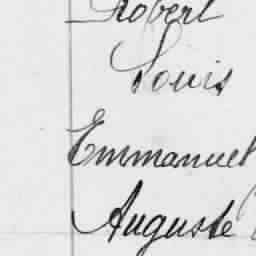 Robert
Louis
Emmanuel
Auguste